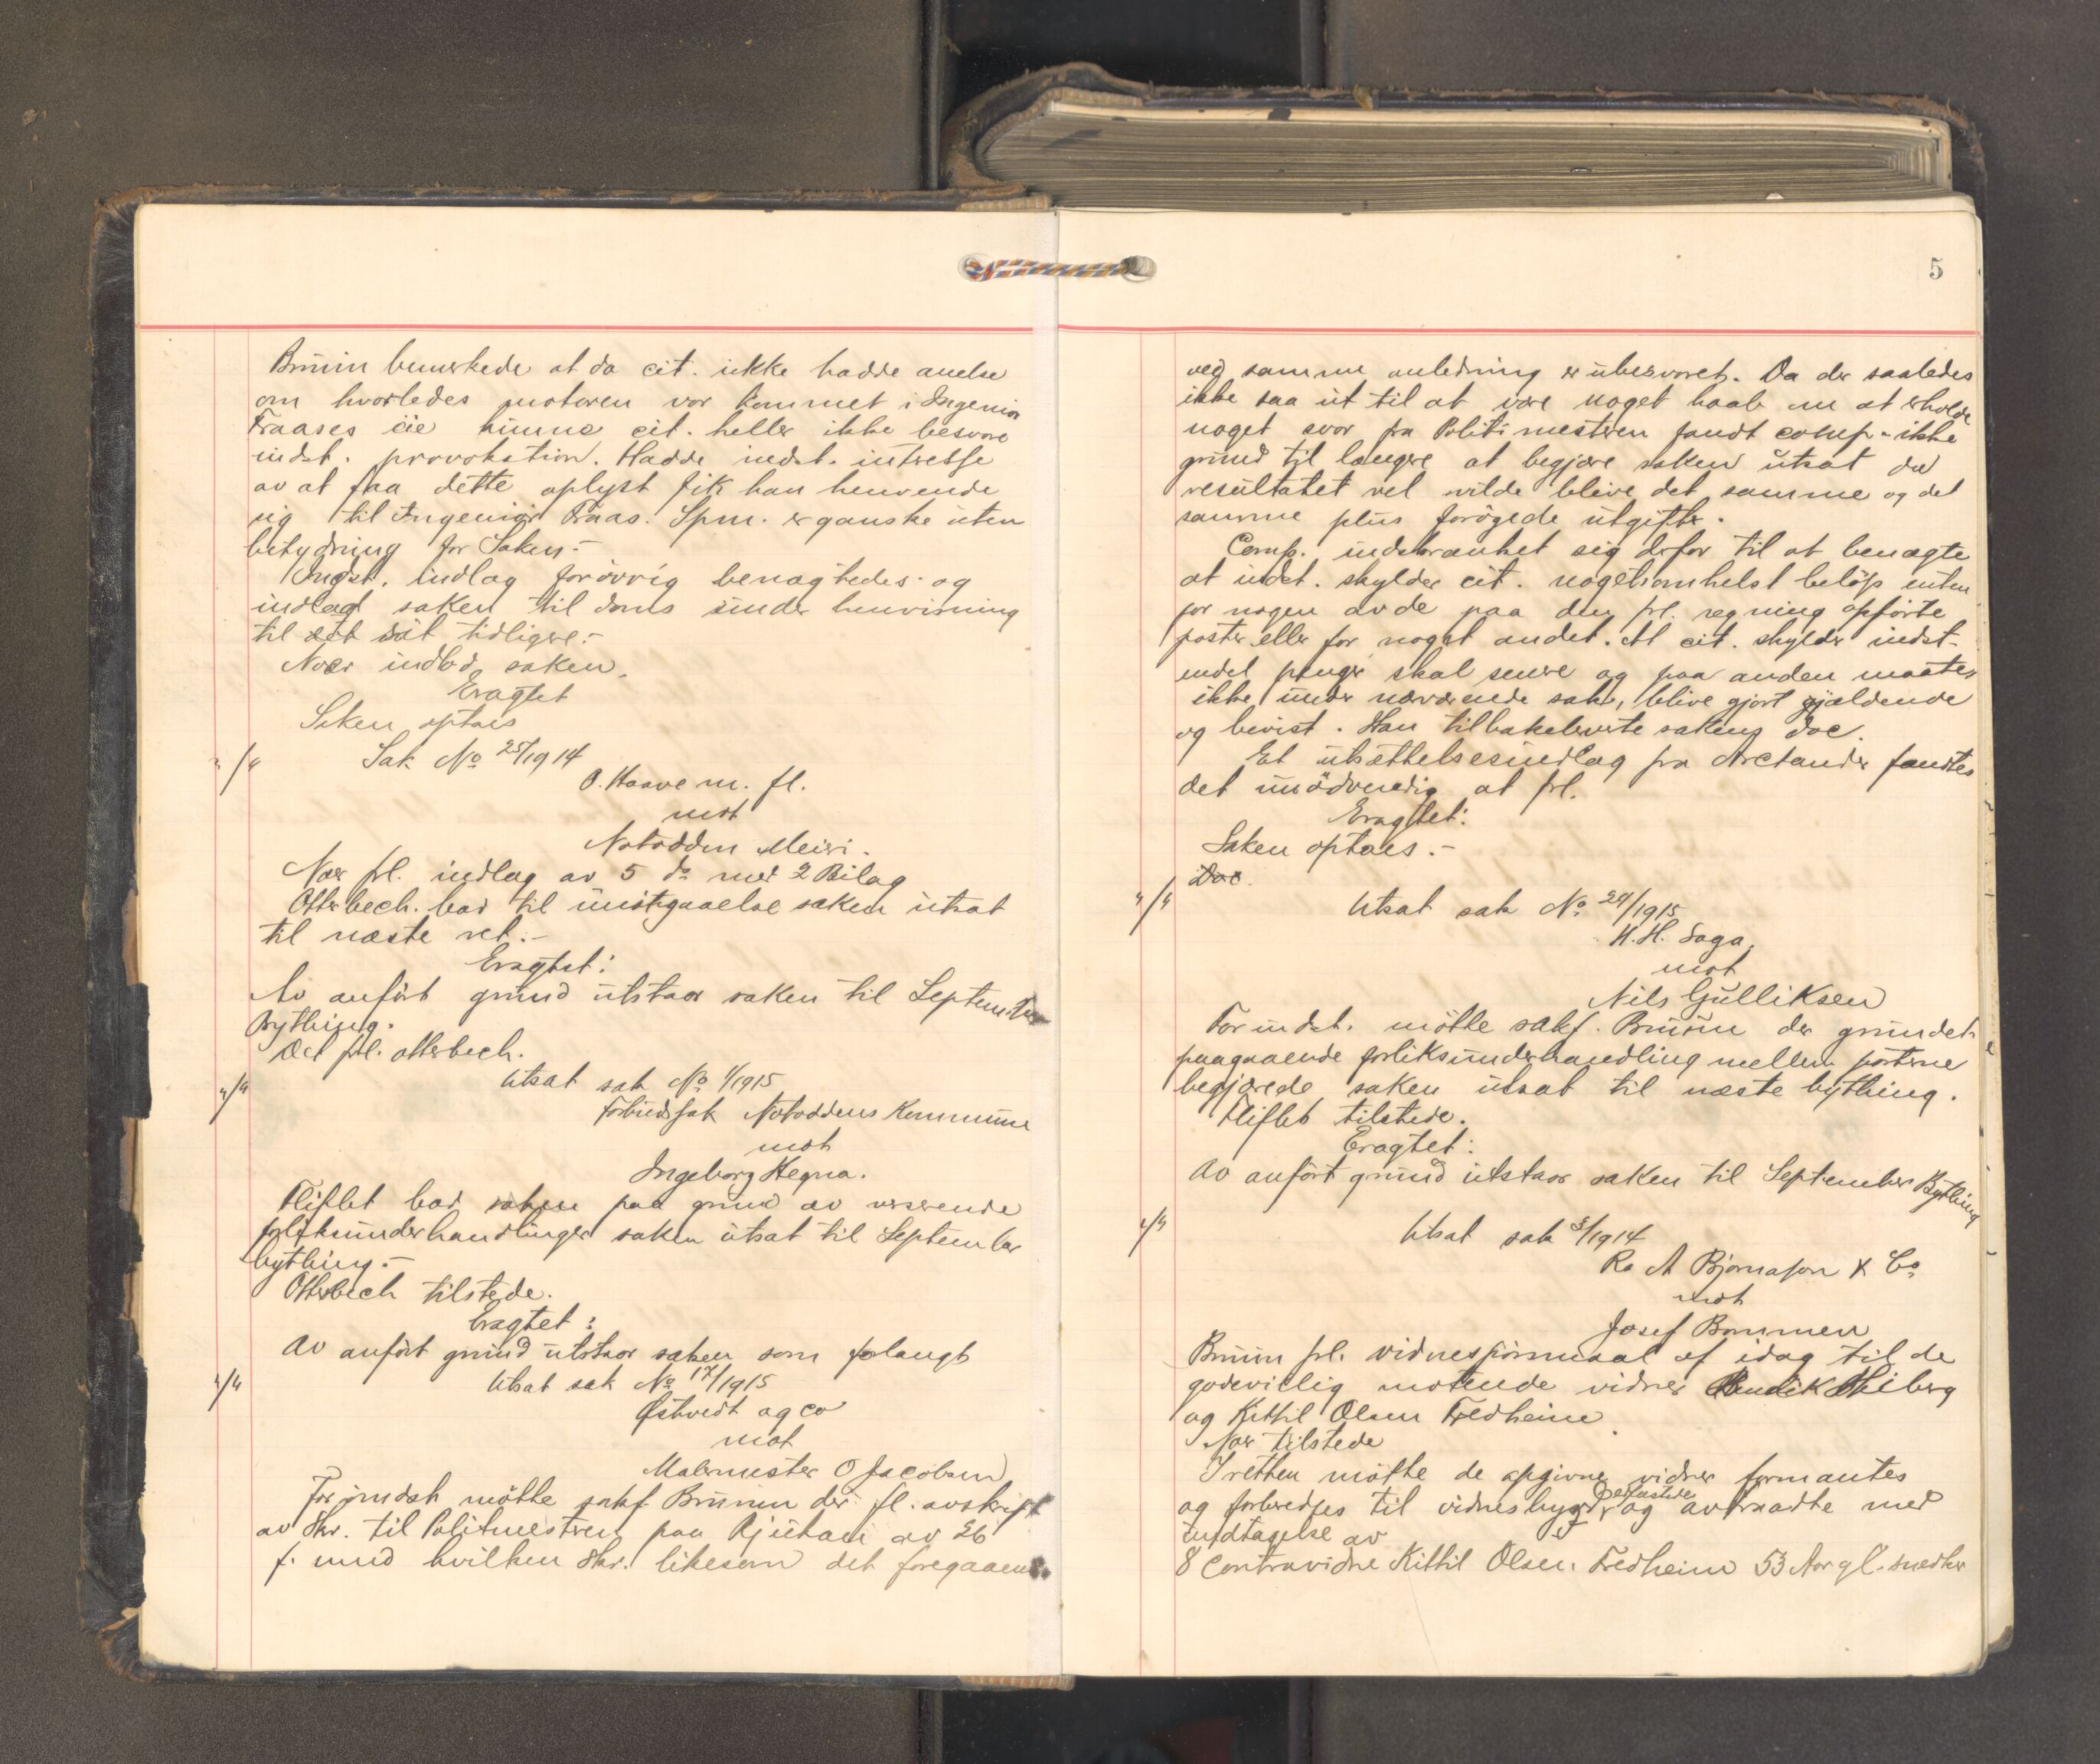 Bruun bemerkede at da cit. ikke hadde anelse
om hvorledes motoren var kommet i Ingeniør
Fraases eie kunne cit. heller ikke besvare
indst. provokation. Hadde indst. intresse
av at faa dette oplyst fik han henvende
sig til Ingeniør Fraas. Spm. er ganske uten
betydning for Saken.-
Indst. indlæg forövrig benægtedes og
indlod saken til doms under henvisning
til tidligere.-
Noer indlod saken.
Eragtet
Saken optaes
Sak No 25/1914
O. Haave m. fl.
mot
Notodden Meieri.
Noer frl. indlæg av 5 ds med 2 Bilag
Otterbech. bad til imötegaaelse saken utsat
til næste ret.-
Eragtet:
Av anfört grund utstaar saken til September
Bything.
Act frl. Otterbech.
Utsat sak No 1/1915
Forbudssak Notoddens Kommune
mot
Ingeborg Hegna.
Fliflet bad saken paa grund av verserende
forliksunderhandlinger saken utsat til September
bything.-
Otterbech tilstede.
Eragtet:
Av anfört grund utstaar saken som forlangt
Utsat sak No 17/1915
Østvedt og co
mot
Malermester O Jacobsen
For indst mötte sakf. Bruun der frl. avskrift
av Skr. til Politimesteren paa Rjukan av 26
f. mnd hvilken Skr. likesom det foregaaende
5
ved samme anledning er ubesvaret. Da der saaledes
ikke saa ut til at være noget haab om at erholde
noget svar fra Politimesteren fandt comp. ikke
grund til længere at begjære saken utsat da
resultatet vel vilde blive det samme og det
samme plus forögede utgifter.
Comp. indskrænket sig derfor til at benægte
at indst. skylder cit. nogetsomhelst belöp enten
for nogen av de paa den frl. regning opförte
poster eller for noget andet. At cit. skylder indst.
endel penger skal senere og paa anden maate,
ikke under nærværende sak, blive gjort gjældende
og bevist. Han tilbakeleverte sakens doc.
Et utsættelsesindlæg fra Arctander fandtes
det unödvendig at frl.
Eragtet:
Saken optaes.-
Doc.
Utsat sak No 29/1915
H. H. Saga,
mot
Nils Gulliksen
For indst. mötte sakf. Bruun der grundet
paagaaende forliksunderhandling mellem parterne
begjærede saken utsat til næste bything.
Fliflet tilstede.
Eragtet:
Av anfört grund utstaar saken til September Bything
Utsat sak 3/1914
Ra A Bjornason & Co
mot
Josef Bommen
Bruun frl. vidnespörsmaal af idag til de
godevillig motende vidner Hiberg
og Kittil Olsen Fredheim
Noer tilstede
I retten mötte de opgivne vidner formantes
og forberedtes til vidnesbyrd og avtraadte med
undtagelse av
8 Contravidne Kittil Olsen Fredheim 53 Aar gl. snedker